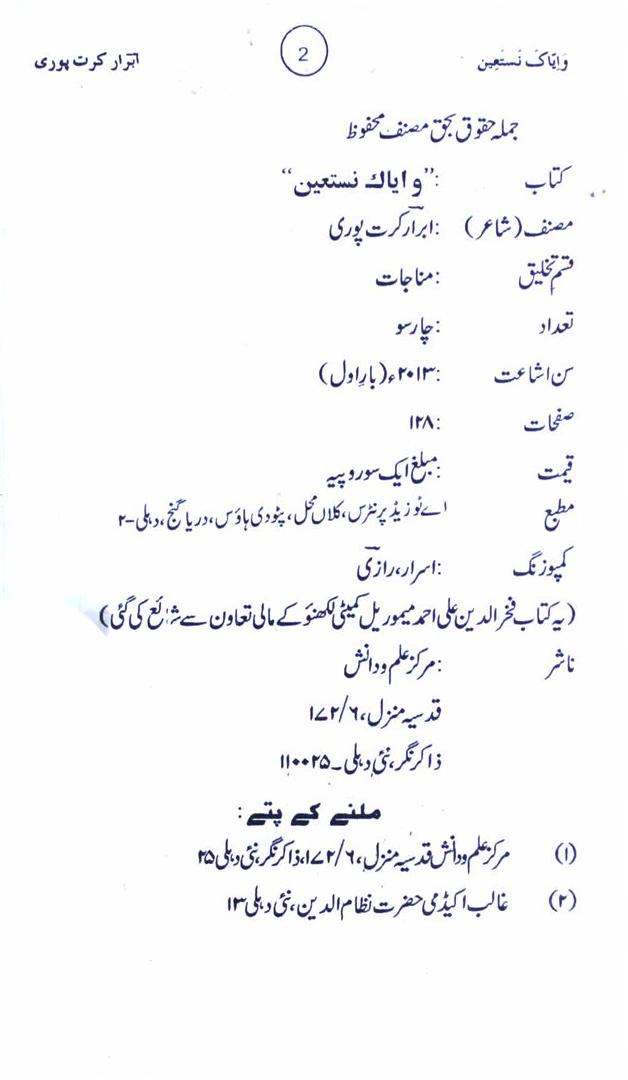 وَاِیّاکَ نَستَعِین 2 ابرؔار کرت پوری
جملہ حقوق بحق مصنف محفوظ
کتاب :”و ایاك نستعین“
مصنف (شاعر) :ابرارؔ کرت پوری
قسمِ تخلیق :مناجات
تعداد :چارسو
سن اشاعت :۲۰۱۳ء (بارِ اول)
صفحات :۱۲۸
قیمت :مبلغ ایک سو روپیہ
مطبع اے ٹو زیڈ پرنٹرس، کلاں محل، پٹودی ہاؤس، دریا گنج، دہلی-۲
کمپوزنگ :اسرار، رازیؔ
(یہ کتاب فخرالدین علی احمد میموریل کمیٹی لکھنؤ کے مالی تعاون سے شائع کی گئی)
ناشر :مرکز علم و دانش
قدسیہ منزل، ۱۷۲/۶
ذاکر نگر، نئی دہلی۔۱۱۰۰۲۵
ملنے کے پتے :
(۱) مرکز علم و دانش قدسیہ منزل، ۱۷۲/۶، ذاکر نگر، نئی دہلی ۲۵
(۲) غالب اکیڈمی حضرت نظام الدین، نئی دہلی ۱۳